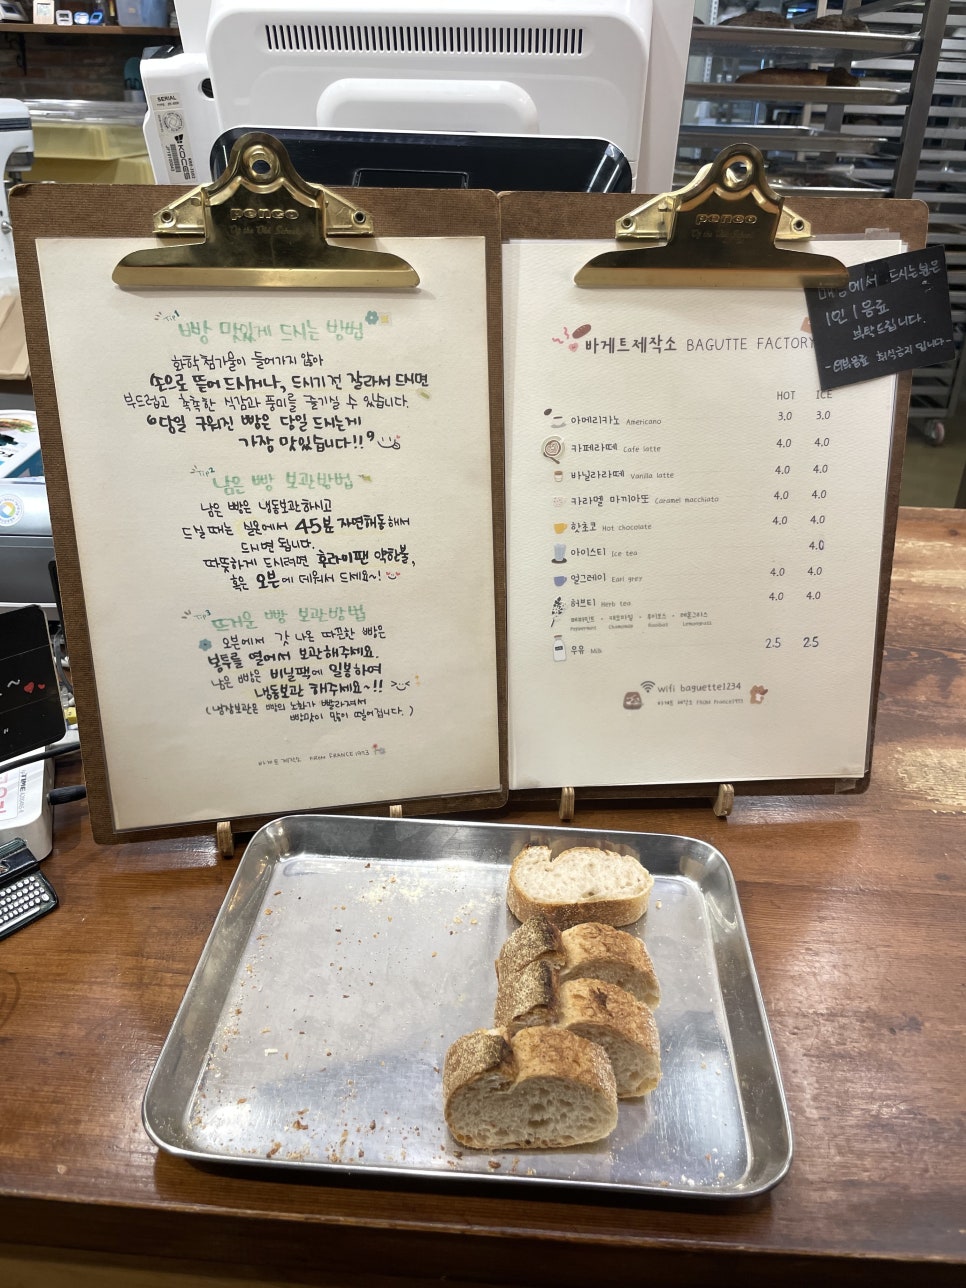 SERIAL
KONES
penco
Tip1
빵 맛있게 드시는 방법
화학첨가물이 들어가지 않아
손으로 뜯어 드시거나, 드시기전 잘라서 드시면
부드럽고 촉촉한 식감과 풍미를 즐기실 수 있습니다.
"당일 구워진 빵은 당일 드시는게
가장 맛있습니다!!"
Tip2
남은 빵 보관방법
남은 빵은 냉동보관하시고
드실 때는 실온에서 45분 자연해동해서
드시면 됩니다.
따뜻하게 드시려면 후라이팬 약한불,
혹은 오븐에 데워서 드세요~!
Tip3
뜨거운 빵 보관방법
오븐에서 갓 나온 따끈한 빵은
봉투를 열어서 보관해주세요.
남은 빵은 비닐팩에 밀봉하여
냉동보관 해주세요~!! >_<
(냉장보관은 빵의 노화가 빨라져서
빵맛이 많이 떨어집니다.)
바게트 제작소 FROM FRANCE 1973
penco
바게트제작소 BAGUTTE FACTORY
HOT ICE
아메리카노 Americano 3.0 3.0
카페라떼 Cafe latte 4.0 4.0
바닐라라떼 Vanilla latte 4.0 4.0
카라멜 마기아또 Caramel macchiato 4.0 4.0
핫초코 Hot chocolate 4.0 4.0
아이스티 Ice tea 4.0
얼그레이 Earl grey 4.0 4.0
허브티 Herb tea 4.0 4.0
페퍼민트 · 캐모마일 · 루이보스 · 레몬그라스
Peppermint Chamomile Rooibos Lemongrass
우유 Milk 2.5 2.5
wifi baguette1234
바게트 제작소 FROM France1973
매장에서 드시는분은
1인 1음료
부탁드립니다.
-외부음료 취식금지 입니다-